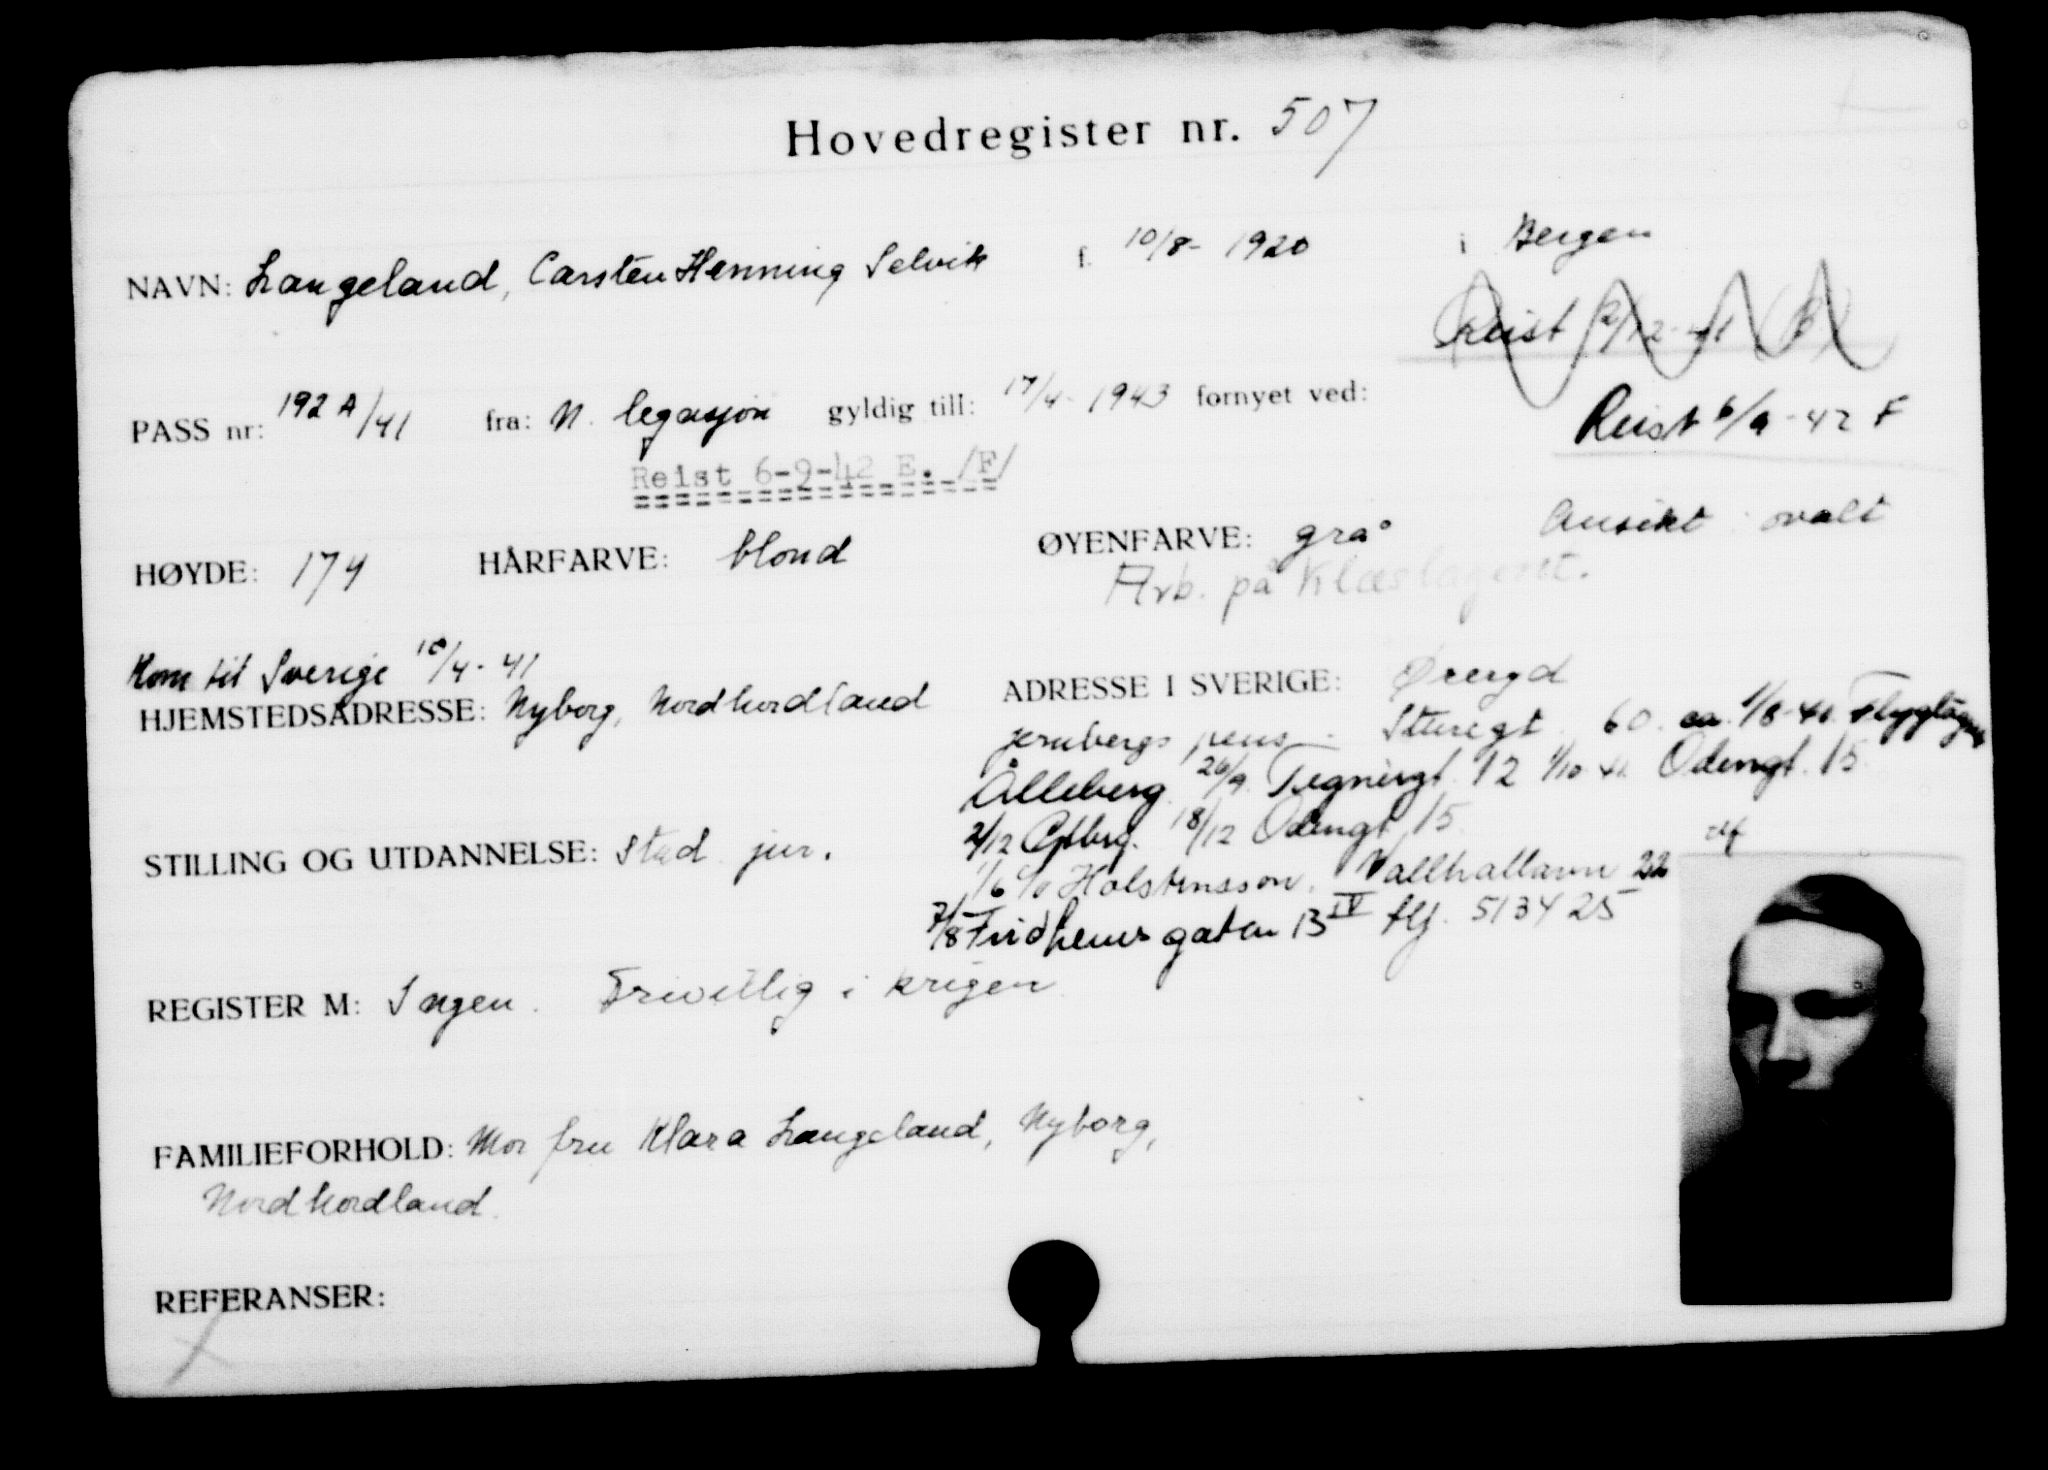 Hovedregister nr. 507
NAVN: Langeland, Carsten Henning Selvik f. 10/8- 1920 i Bergen
Reist 2/12-41 (B)
PASS nr: 192 A/41 fra: N. legasjon gyldig till: 17/4- 1943 fornyet ved:
Reist 6/9-42 F
Reist 6-9-42 E. /F/
HØYDE: 174 HÅRFARVE: blond ØYENFARVE: grå Ansikt ovalt
Arb. på Klæslageret.
Kom til Sverige 18/4-41
HJEMSTEDSADRESSE: Nyborg, Nordhordland ADRESSE I SVERIGE: Øreryd
jernbergs pens. Sturegt. 60. ca. 1/8-41 Flyglägret
Ålleberg. 26/9 Tegnérgt. 12 1/10 41. Odengt. 15.
2/12 Gtbrg. 18/12 Odengt. 15
STILLING OG UTDANNELSE: Stud. jur.
1/6 c/o Holstensson, Vallhallavn 22
7/8 Fridhemsgatan 13 IV tlf. 513425
REGISTER M: Ingen. Frivillig i krigen
FAMILIEFORHOLD: Mor fru Klara Langeland, Nyborg,
Nordhordland.
REFERANSER: